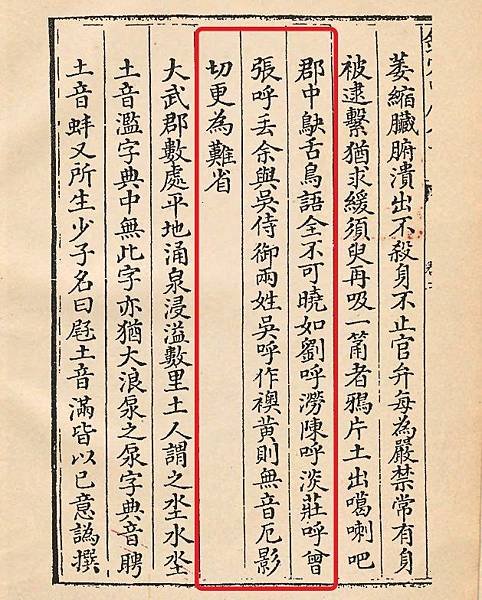 萎縮臟腑潰出不殺身不止官弁每為嚴禁常有身
被逮繫猶求緩須臾再吸一筩者鴉片土出噶喇吧
郡中鴃舌鳥語全不可曉如劉呼澇陳呼淡莊呼曾
張呼丟余與吳侍御兩姓吳呼作襖黃則無音厄影
切更為難省
大武郡數處平地涌泉浸溢數里土人謂之坔水坔
土音濫字典中無此字亦猶大浪泵之泵字典音聘
土音蚌又所生少子名曰屘土音滿皆以己意譌撰